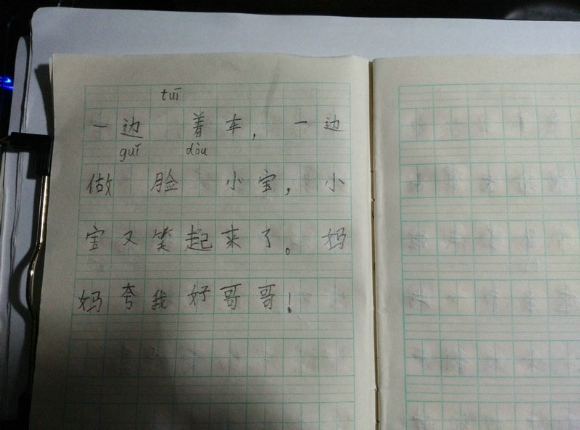 tuī
一边 着车，一边
guǐ dòu
做 脸 小宝，小
宝又笑起来了。妈
妈夸我好哥哥！